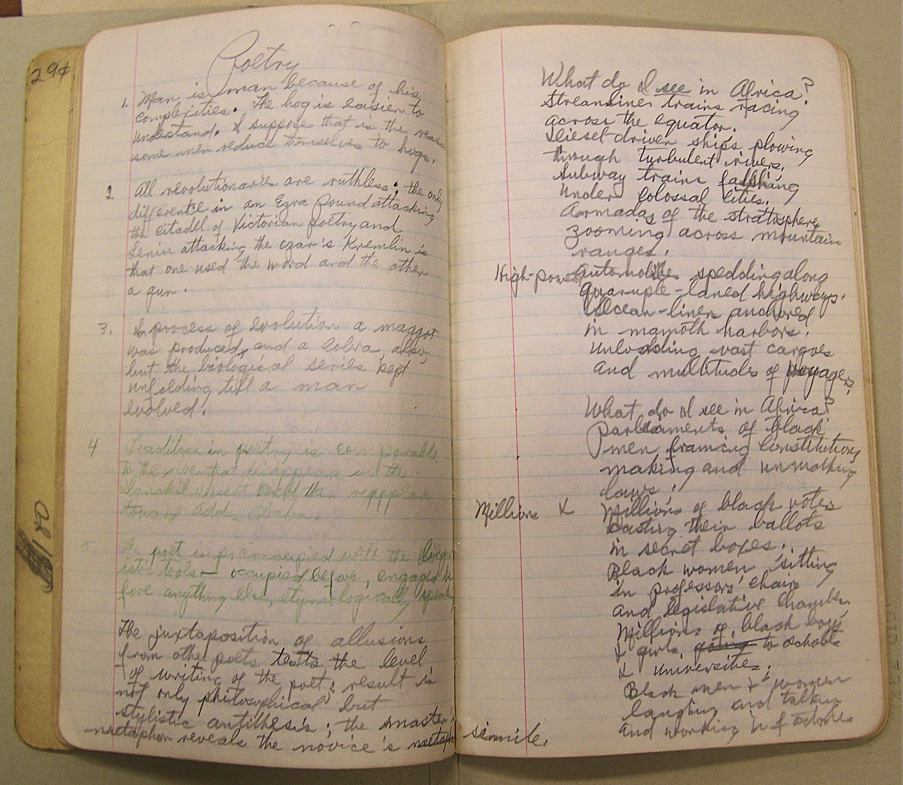 29¢
Poetry
1. Man is man because of his
complexities. The hog is easier to
understand. I suppose that is the reason
some men reduce themselves to hogs.
2 All revolutionaries are ruthless; the only
difference in an Ezra Pound attacking
the citadel of Victorian poetry and
Lenin attacking the czar's Kremlin is
that one used the word and the other
a gun.
3. process of evolution a maggot
was produced, and a cobra, also
but the biological series kept
unfolding till a man
evolved.
4 Tradition in poetry is comparable
to the river that disappears in the
desert and then reappears
5 poet is preoccupied with the
tools — occupied before, engaged be
fore anything else, etymologically speaking
The juxtaposition of allusions
from other poets tests the level
of writing of the poet; result is
not only philosophical but
stylistic antithesis; the master's
metaphor reveals the novice's
simile.
What do I see in Africa?
Streamliner trains racing
across the equator.
Diesel driven ships plowing
through turbulent rivers.
Subway trains
under colossal cities.
Armadas of the stratosphere
zooming across mountain
ranges.
High-power automobiles speeding along
quadruple-laned highways.
Ocean-liners anchored
in mamoth harbors.
Unloading vast cargoes
and multitudes of
What do I see in Africa?
Parliaments of black
men framing constitutions
making and unmaking
laws.
Millions X Millions of black votes
Casting their ballots
in secret boxes.
Black women sitting
in professors' chairs
and legislative chambers
Millions of black boys
& girls, going to schools
& universities.
Black men & women
laughing and talking
and working in